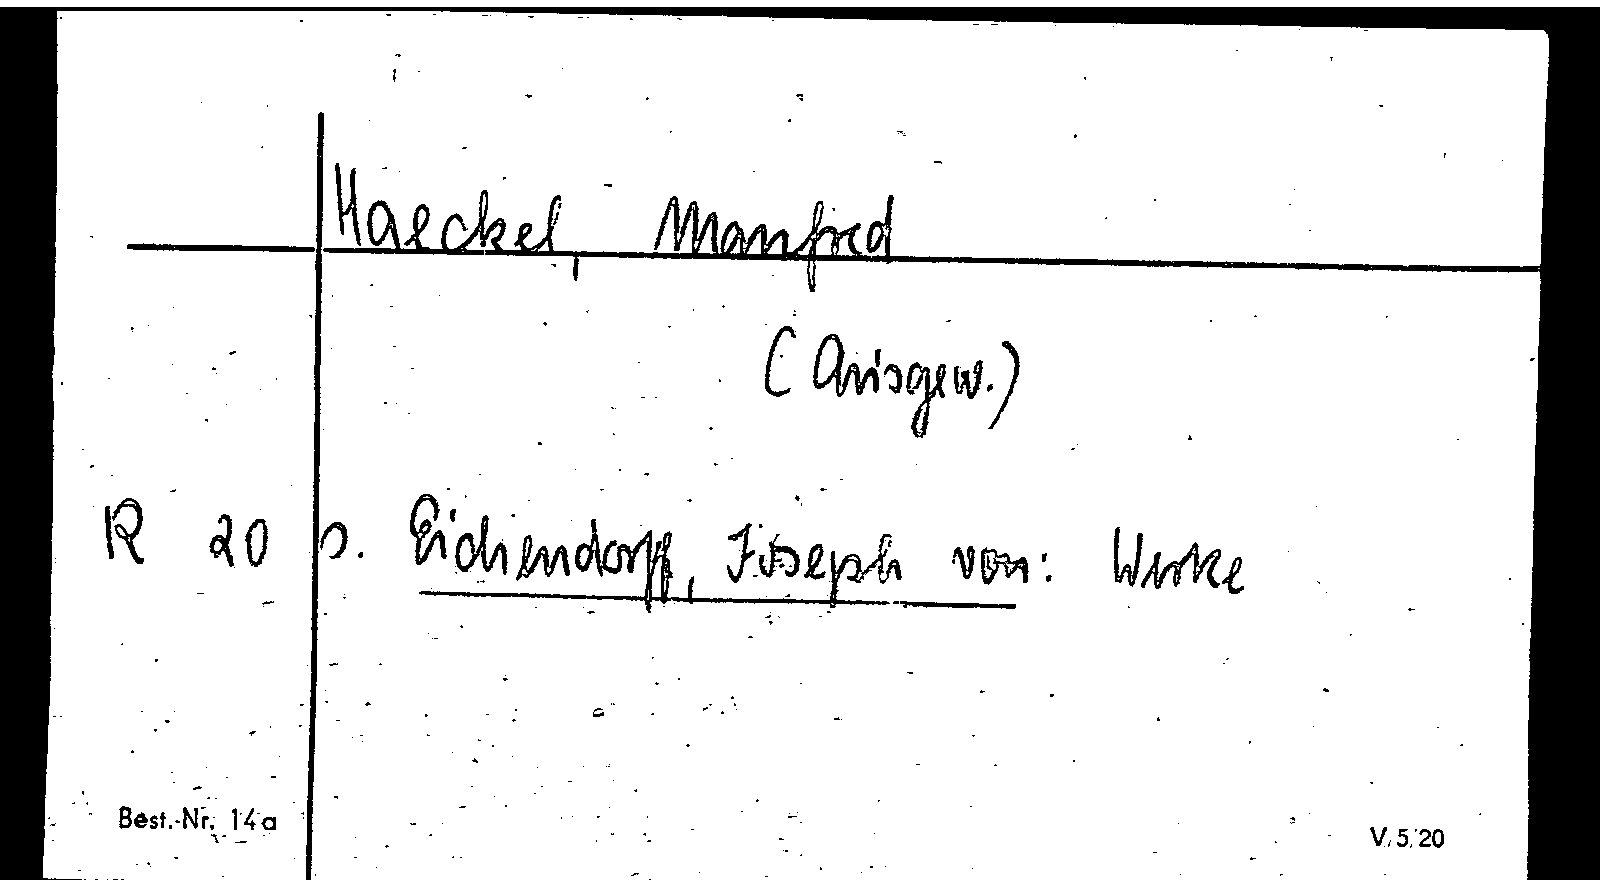 Haeckel, Manfred
(Ausgew.)
R 20 s. Eichendorff, Joseph von: Werke
Best.-Nr. 14a
V/5/20